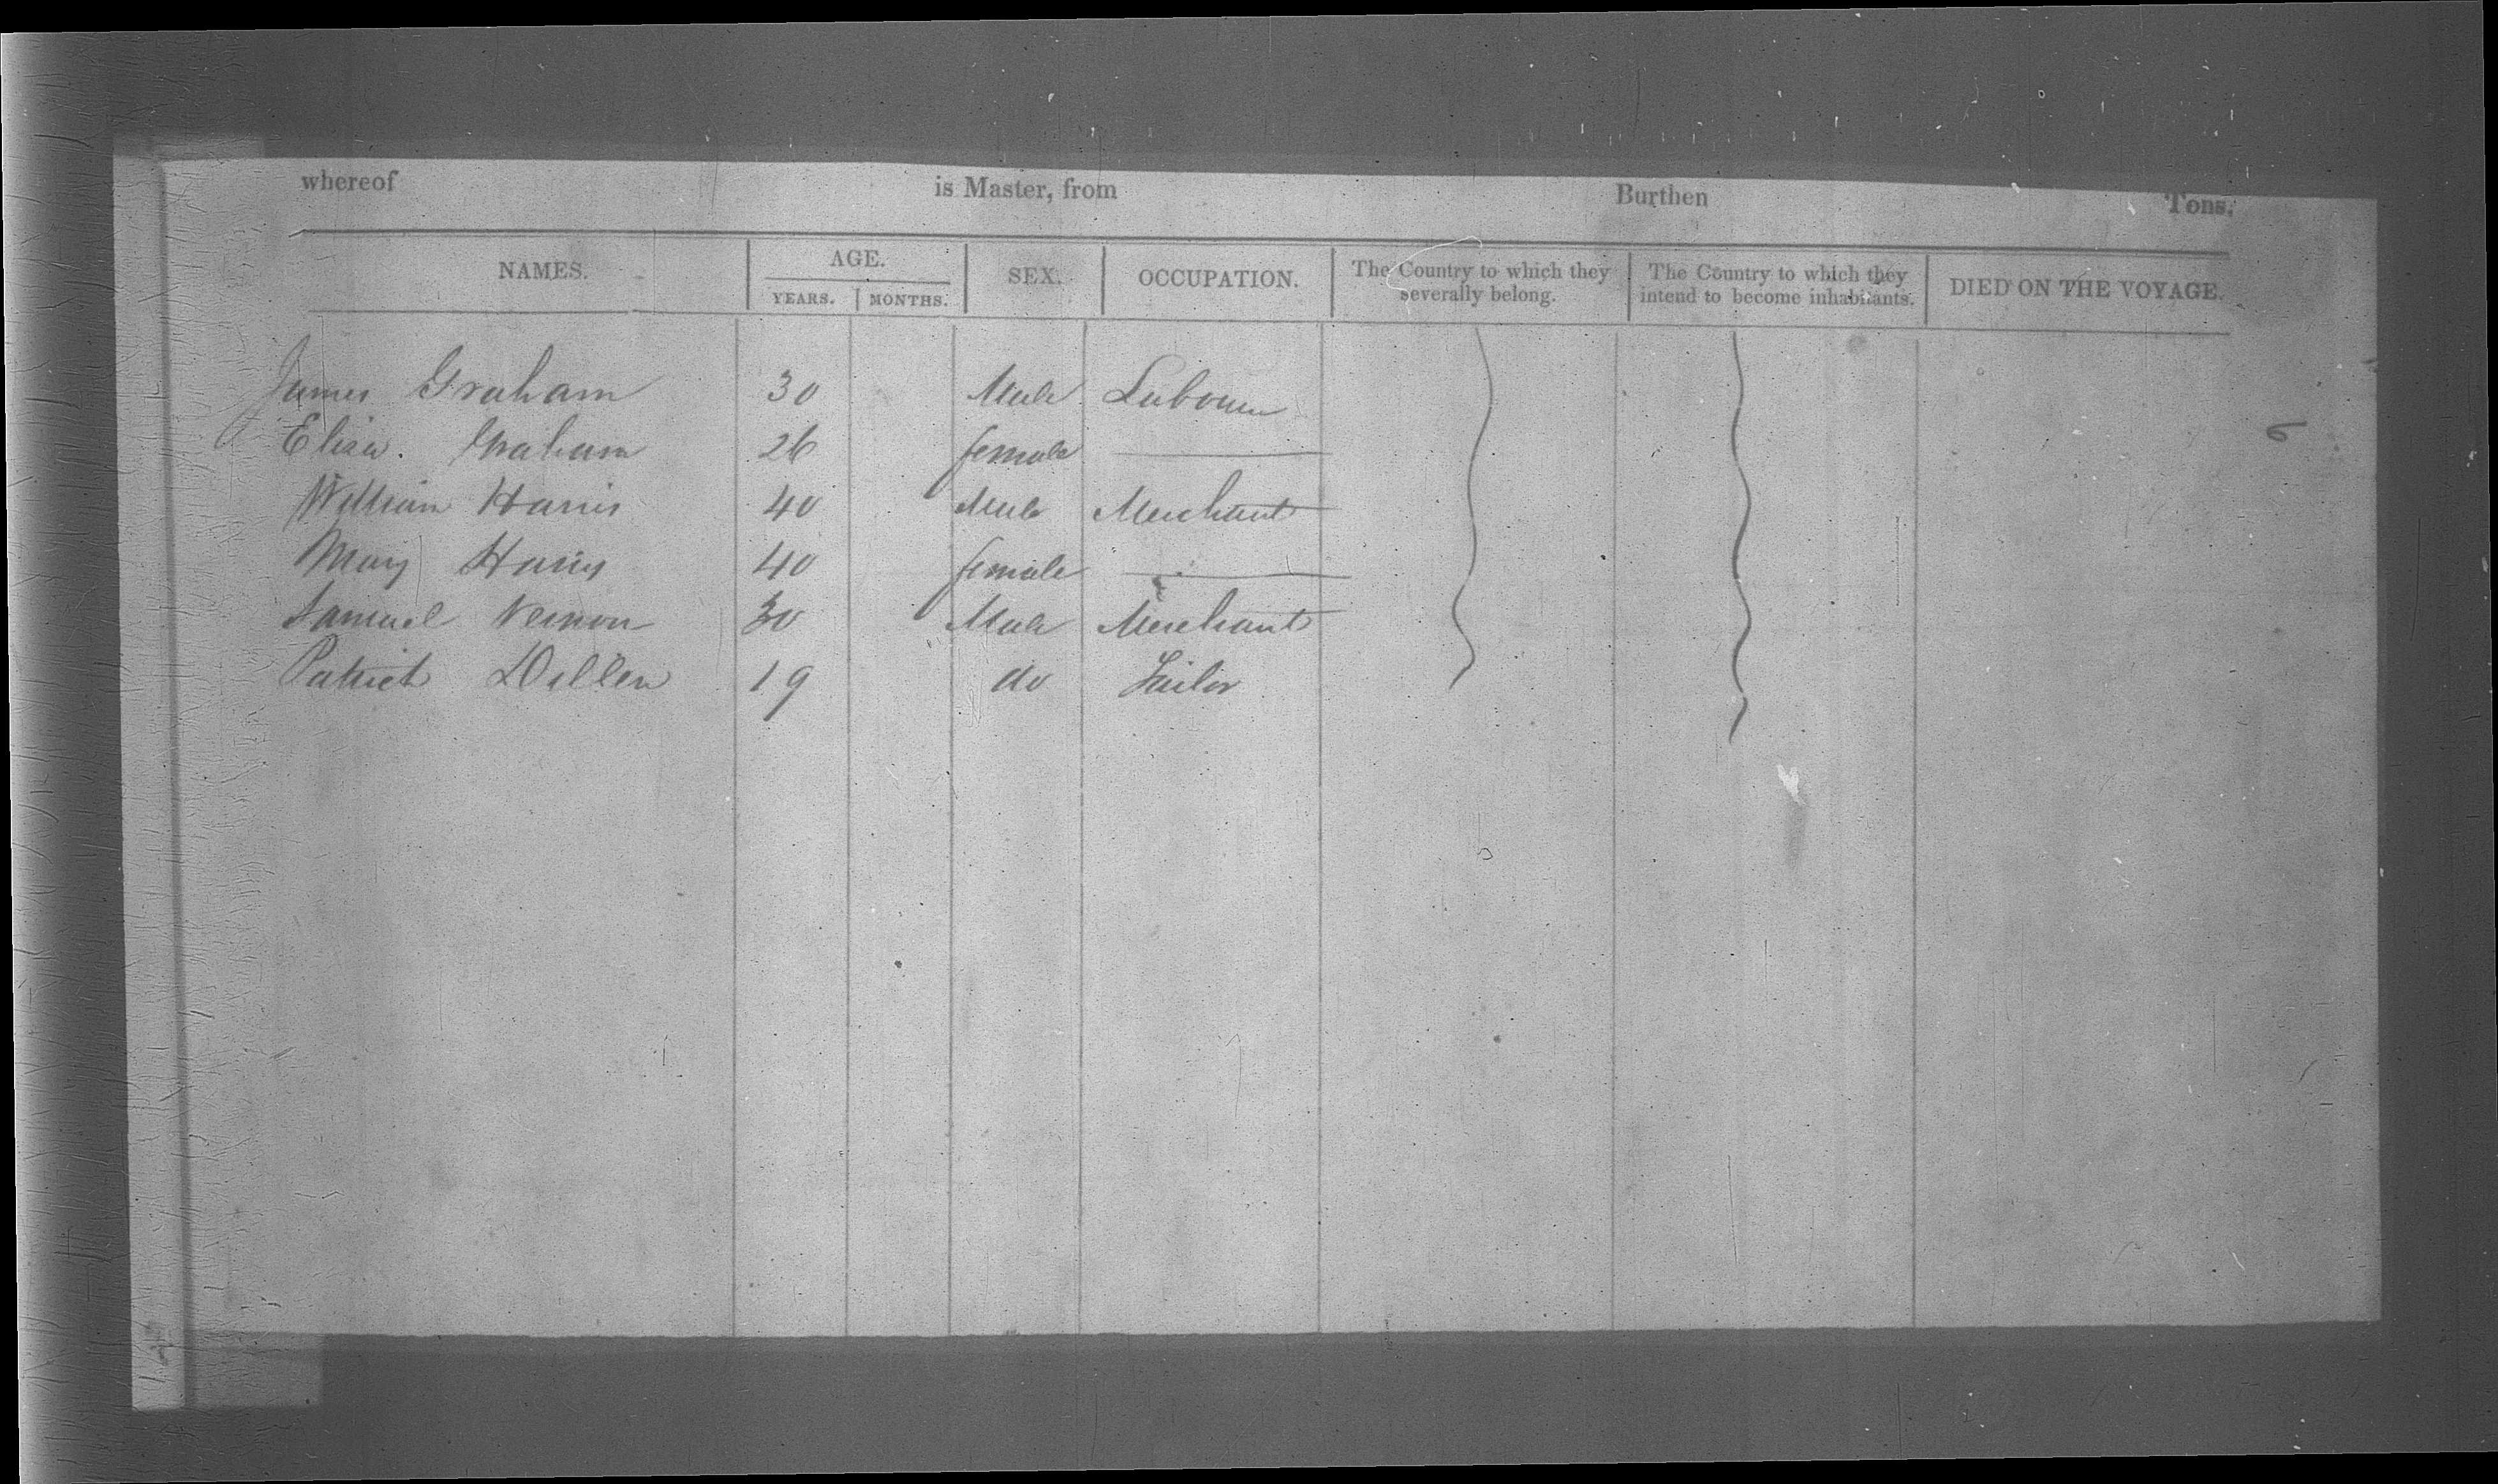 whereof is Master, from Burthen Tons.
NAMES. AGE. SEX. OCCUPATION. The Country to which they severally belong. The Country to which they intend to become inhabitants. DIED ON THE VOYAGE.
YEARS. MONTHS.
James Graham 30 Male Labourer
Eliza. Graham 26 female
William Harris 40 Male Merchant
Mary Harris 40 female
Samuel Vernon 30 Male Merchant
Patrick Dillen 19 do